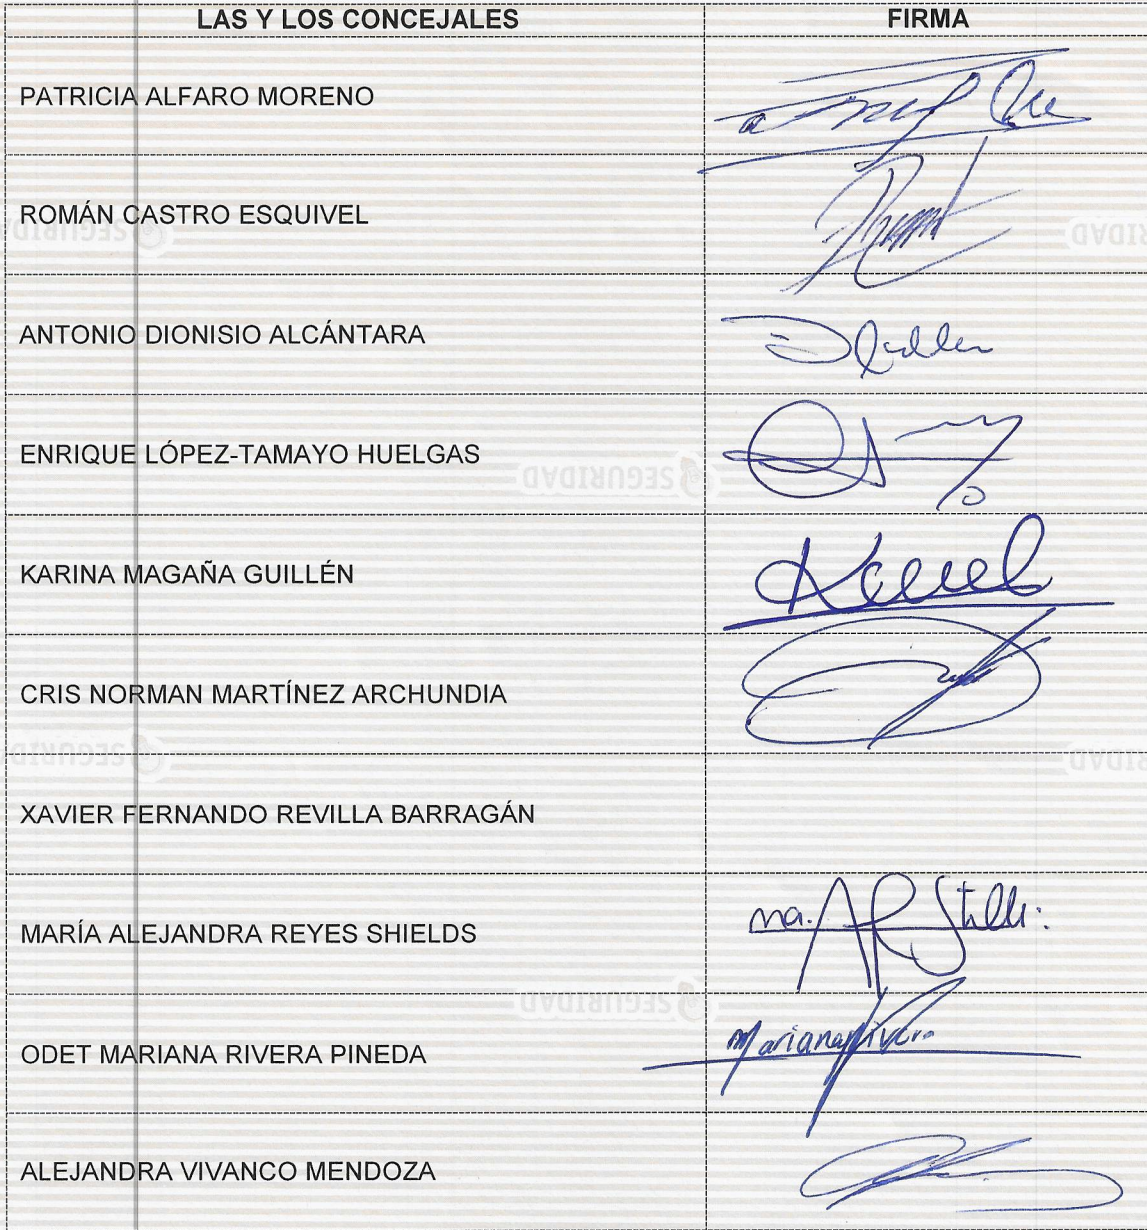 LAS Y LOS CONCEJALES FIRMA
PATRICIA ALFARO MORENO
ROMÁN CASTRO ESQUIVEL
SEGURIDAD
ANTONIO DIONISIO ALCÁNTARA
ENRIQUE LÓPEZ-TAMAYO HUELGAS
SEGURIDAD
KARINA MAGAÑA GUILLÉN
CRIS NORMAN MARTÍNEZ ARCHUNDIA
SEGURIDAD
XAVIER FERNANDO REVILLA BARRAGÁN
MARÍA ALEJANDRA REYES SHIELDS
SEGURIDAD
ODET MARIANA RIVERA PINEDA Mariana Rivera
ALEJANDRA VIVANCO MENDOZA